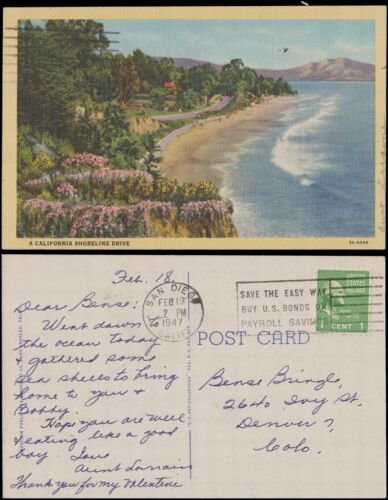 A CALIFORNIA SHORELINE DRIVE
Feb. 18,
Dear Bense:
Went down
the ocean today
& gathered some
sea shells to bring
home to you &
Bobby.
Hope you are well
& eating like a good
boy. Love
Aunt Lorraine
Thank you for my Valentine
SAN DIEGO
FEB 19
2 PM
1947
CALIF.
SAVE THE EASY WAY
BUY U.S. BONDS ON
PAYROLL SAVINGS
UNITED STATES
POSTAGE
1 CENT 1
POST CARD
Bense Bringle,
2640 Ivy St,
Denver 7,
Colo.